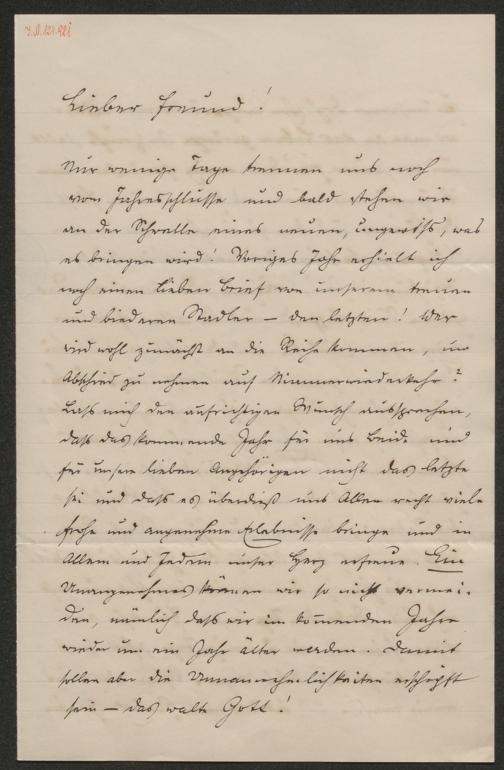 I.N. 121.921
Lieber Freund!
Nur wenige Tage trennen uns noch
vom Jahresschlusse und bald stehen wir
an der Schwelle eines neuen, ungewiß, was
es bringen wird! Voriges Jahr erhielt ich
noch einen lieben Brief von unserem treuen
und biederen Stadler – den letzten! Wer
wird wohl zunächst an die Reihe kommen, um
Abschied zu nehmen auf Nimmerwiederkehr?
Lass mich den aufrichtigen Wunsch aussprechen,
daß das kommende Jahr für uns Beide und
für unsere lieben Angehörigen nicht das letzte
sei und daß es überdieß uns Allen recht viele
frohe und angenehme Erlebnisse bringe und in
Allem und Jedem unser Herz erfreue. Ein
Unangenehmes können wir so nicht vermei-
den, nämlich daß wir im kommenden Jahre
wieder um ein Jahr älter werden. Damit
sollen aber die Unannehmlichkeiten erschöpft
sein – das walte Gott!